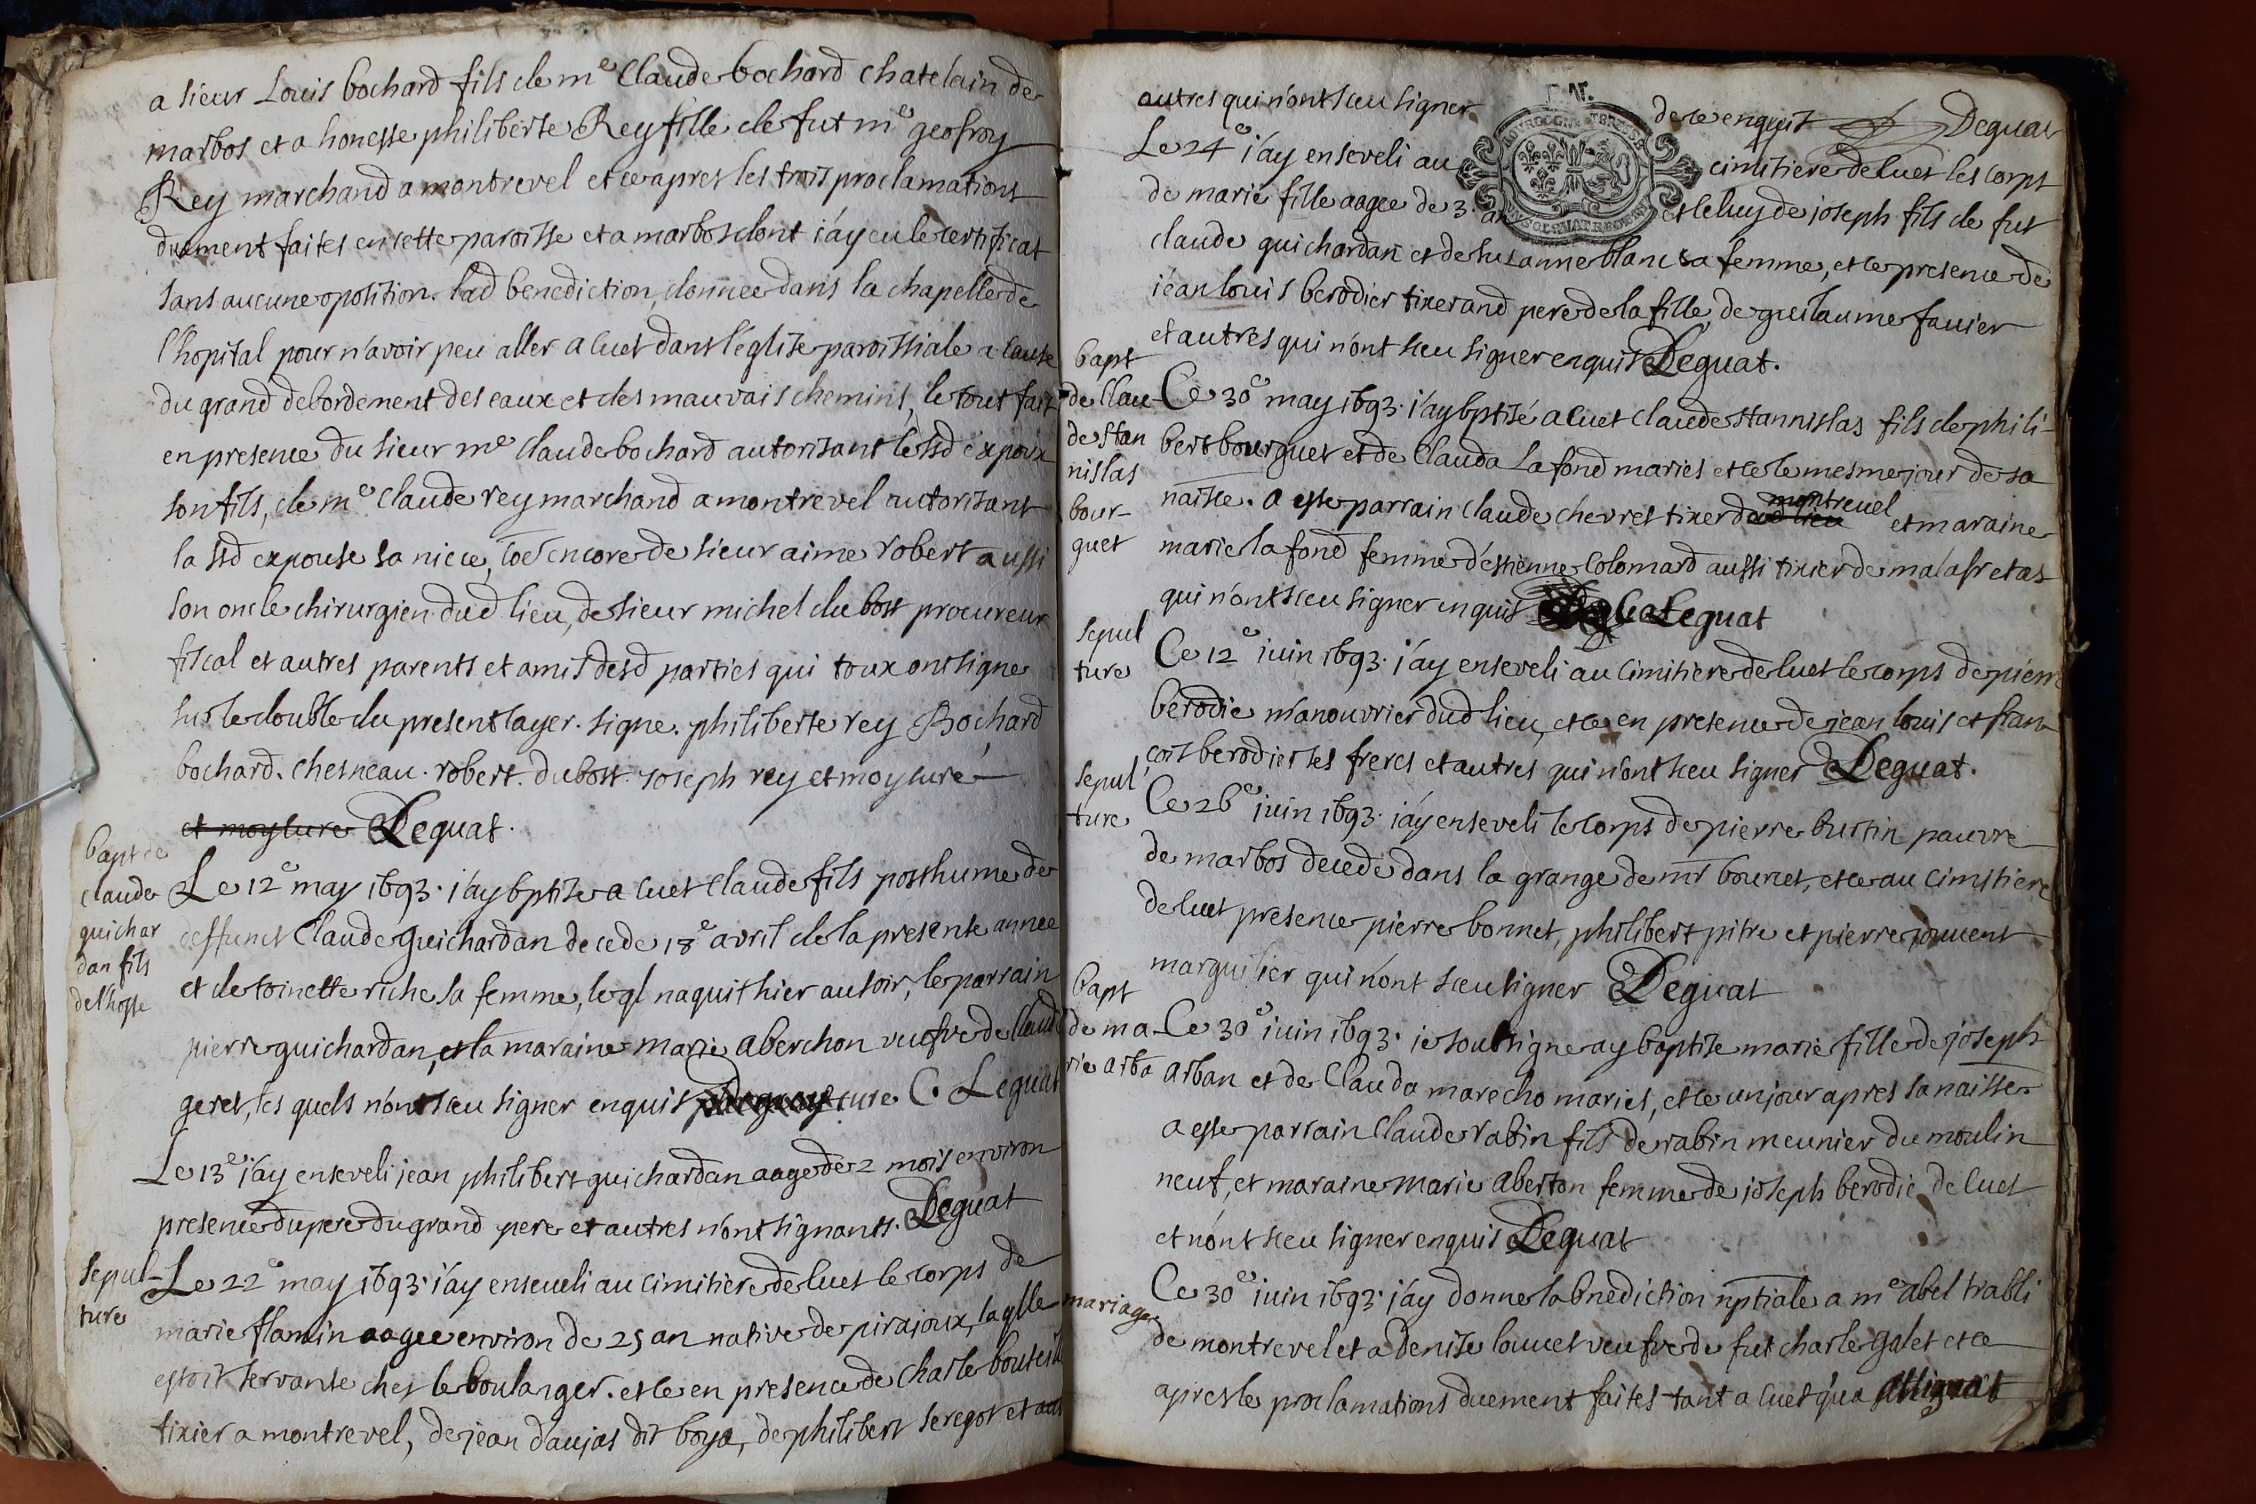 a sieur Louis bochard fils de me Claude bochard chatelain de
marbos et a honeste philiberte Rey fille de fut me geofroy
Rey marchand a montrevel et ce apres les trois proclamations
duement faites en cette paroisse et a marbos dont i'ay eu le certificat
sans aucune oposition. lad benediction donnee dans la chapelle de
l'hopital pour n'avoir peu aller a cuet dans l'eglise paroissiale a cause
du grand debordement des eaux et des mauvais chemins, le tout fait
en presence du sieur me Claude bochard autorisant le ssd expoux
son fils, de me Claude rey marchand a montrevel autorisant
la ssd expouse sa niece, encore de sieur aime robert aussi
son oncle chirurgien dud lieu, de sieur michel du bost procureur
fiscal et autres parents et amis desd parties qui toux ont signe
sur le double du present layer. signe. philiberte rey Bochard
bochard. chesneau. robert. dubost. joseph rey et moy curé
et moy cure Leguat.
bapt de
claude
guichar
dan fils
de l'hoste
Le 12e may 1693. i'ay bptise a cuet Claude fils posthume de
deffunct Claude guichardan decede 18e avril de la presente annee
et de toinette riche sa femme, leql naquit hier au soir, le parrain
pierre guichardan, et la maraine marie aberchon veufve de Claud
geret, les quels n'ont sceu signer enquis cure C. Leguat
Le 13e i'ay enseveli jean philibert guichardan aage de 2 mois environ
presence du pere du grand pere et autres n'ont signants. Leguat
sepul-
ture
Le 22e may 1693. i'ay enseveli au cimitiere de cuet le corps de
marie flamin aagee environ de 25 an native de pirajoux, laqlle
estoit servante ches le boulanger. et ce en presence de Charle bouteill
tixier a montrevel, de jean daujas dit boya, de philibert seregot et
autres qui n'ont sceu signer de ce enquis Leguat
Le 24e i'ay enseveli au cimitiere de cuet les corps
de marie fille aagee de 3. an et celuy de joseph fils de fut
claude guichardan et de susanne blanc sa femme, et ce presence de
iean louis berodier tixerand pere de la fille, de guilaume favier
et autres qui n'ont sceu signer enquis Leguat.
bapt
de Clau
de stan
nislas
bour-
guet
Ce 30e may 1693. i'ay bptisé a cuet Claude stannislas fils de phili-
bert bourguet et de Clauda la fond mariés et ce le mesme jour de sa
naisce. a este parrain Claude chevret tixerd montrevel et maraine
marie la fond femme d'estienne Colomard aussi tixier de malafretas
qui n'ont sceu signer enquis C. Leguat
sepul
ture
Ce 12e iuin 1693. i'ay enseveli au cimitiere de cuet le corps de pierre
berodie manouvrier dud lieu, et ce en presence de jean louis et fran
cois berodier ses freres et autres qui n'ont sceu signer Leguat.
sepul
ture
Ce 26e iuin 1693. i'ay enseveli le corps de pierre burtin pauvre
de marbos decede dans la grange de mr bouvet, et ce au cimitiere
de cuet presence pierre bonnet, philibert pitre et pierre jouvent
marguilier qui n'ont sceu signer Leguat
bapt
de ma-
rie arba
Ce 30e iuin 1693. ie soubsigne ay baptise marie fille de joseph
arban et de Clauda marecho mariés, et ce un jour apres sa naisse
a este parrain Claude rabin fils de rabin meunier du moulin
neuf, et maraine marie aberton femme de joseph berodie de cuet
et n'ont sceu signer enquis Leguat
mariage
Ce 30e iuin 1693. i'ay donne la bnediction nptiale a me abel trabli
de montrevel et a denise louvet veufve de fut charle galet et ce
apres le proclamations duement faites tant a cuet qu'a attignat